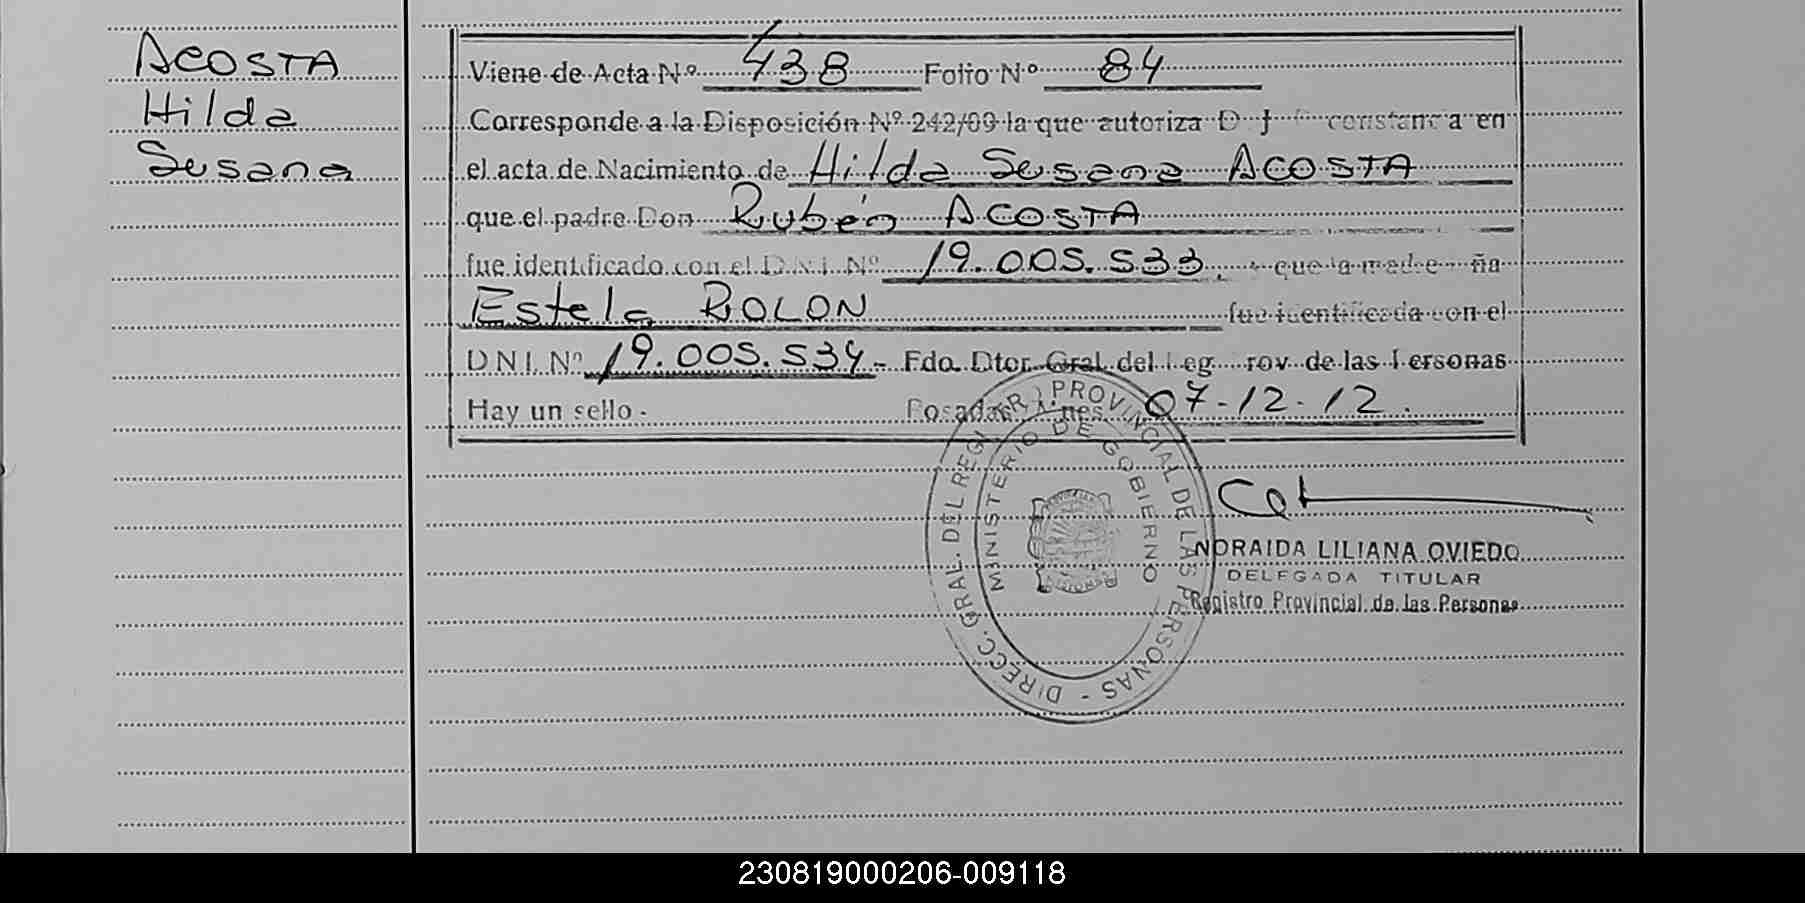 ACOSTA
Hilda
Susana
Viene de Acta Nº 438 Folio Nº 84
Corresponde a la Disposición Nº 242/09 la que autoriza D J constancia en
el acta de Nacimiento de Hilda Susana ACOSTA
que el padre Don Rubén ACOSTA
fue identificado con el D.N.I. Nº 19.005.533, que la madre ña
Estela ROLON fue identificada con el
D N I. Nº 19.005.534.- Fdo. Dtor. Gral. del Reg rov. de las Personas
Hay un sello. Posadas, nes. 07-12-12.
DIRECC. GRAL. DEL REGI TR PROVINCIAL DE LAS PERSONAS -
MINISTERIO DE GOBIERNO
NORAIDA LILIANA OVIEDO
DELEGADA TITULAR
Registro Provincial de las Personas
230819000206-009118